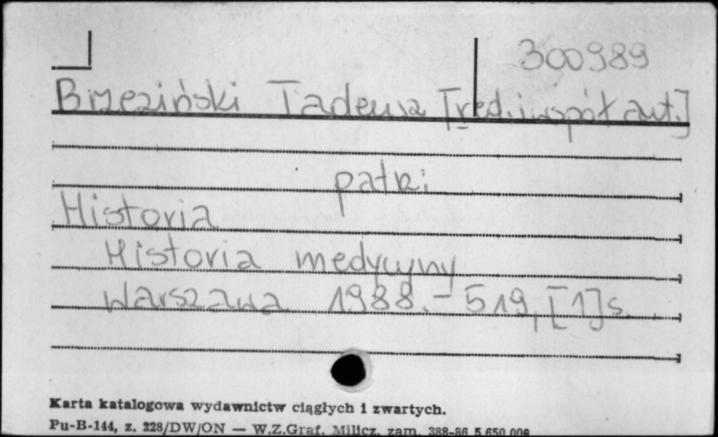 300989
Brzeziński Tadeusz [red. i współaut.]
patrz:
Historia
Historia medycyny
Warszawa 1988. - 519, [1] s.
Karta katalogowa wydawnictw ciągłych i zwartych.
Pu-B-144, z. 228/DW/ON — W.Z.Graf. Milicz, zam. 388-86 5.650.000